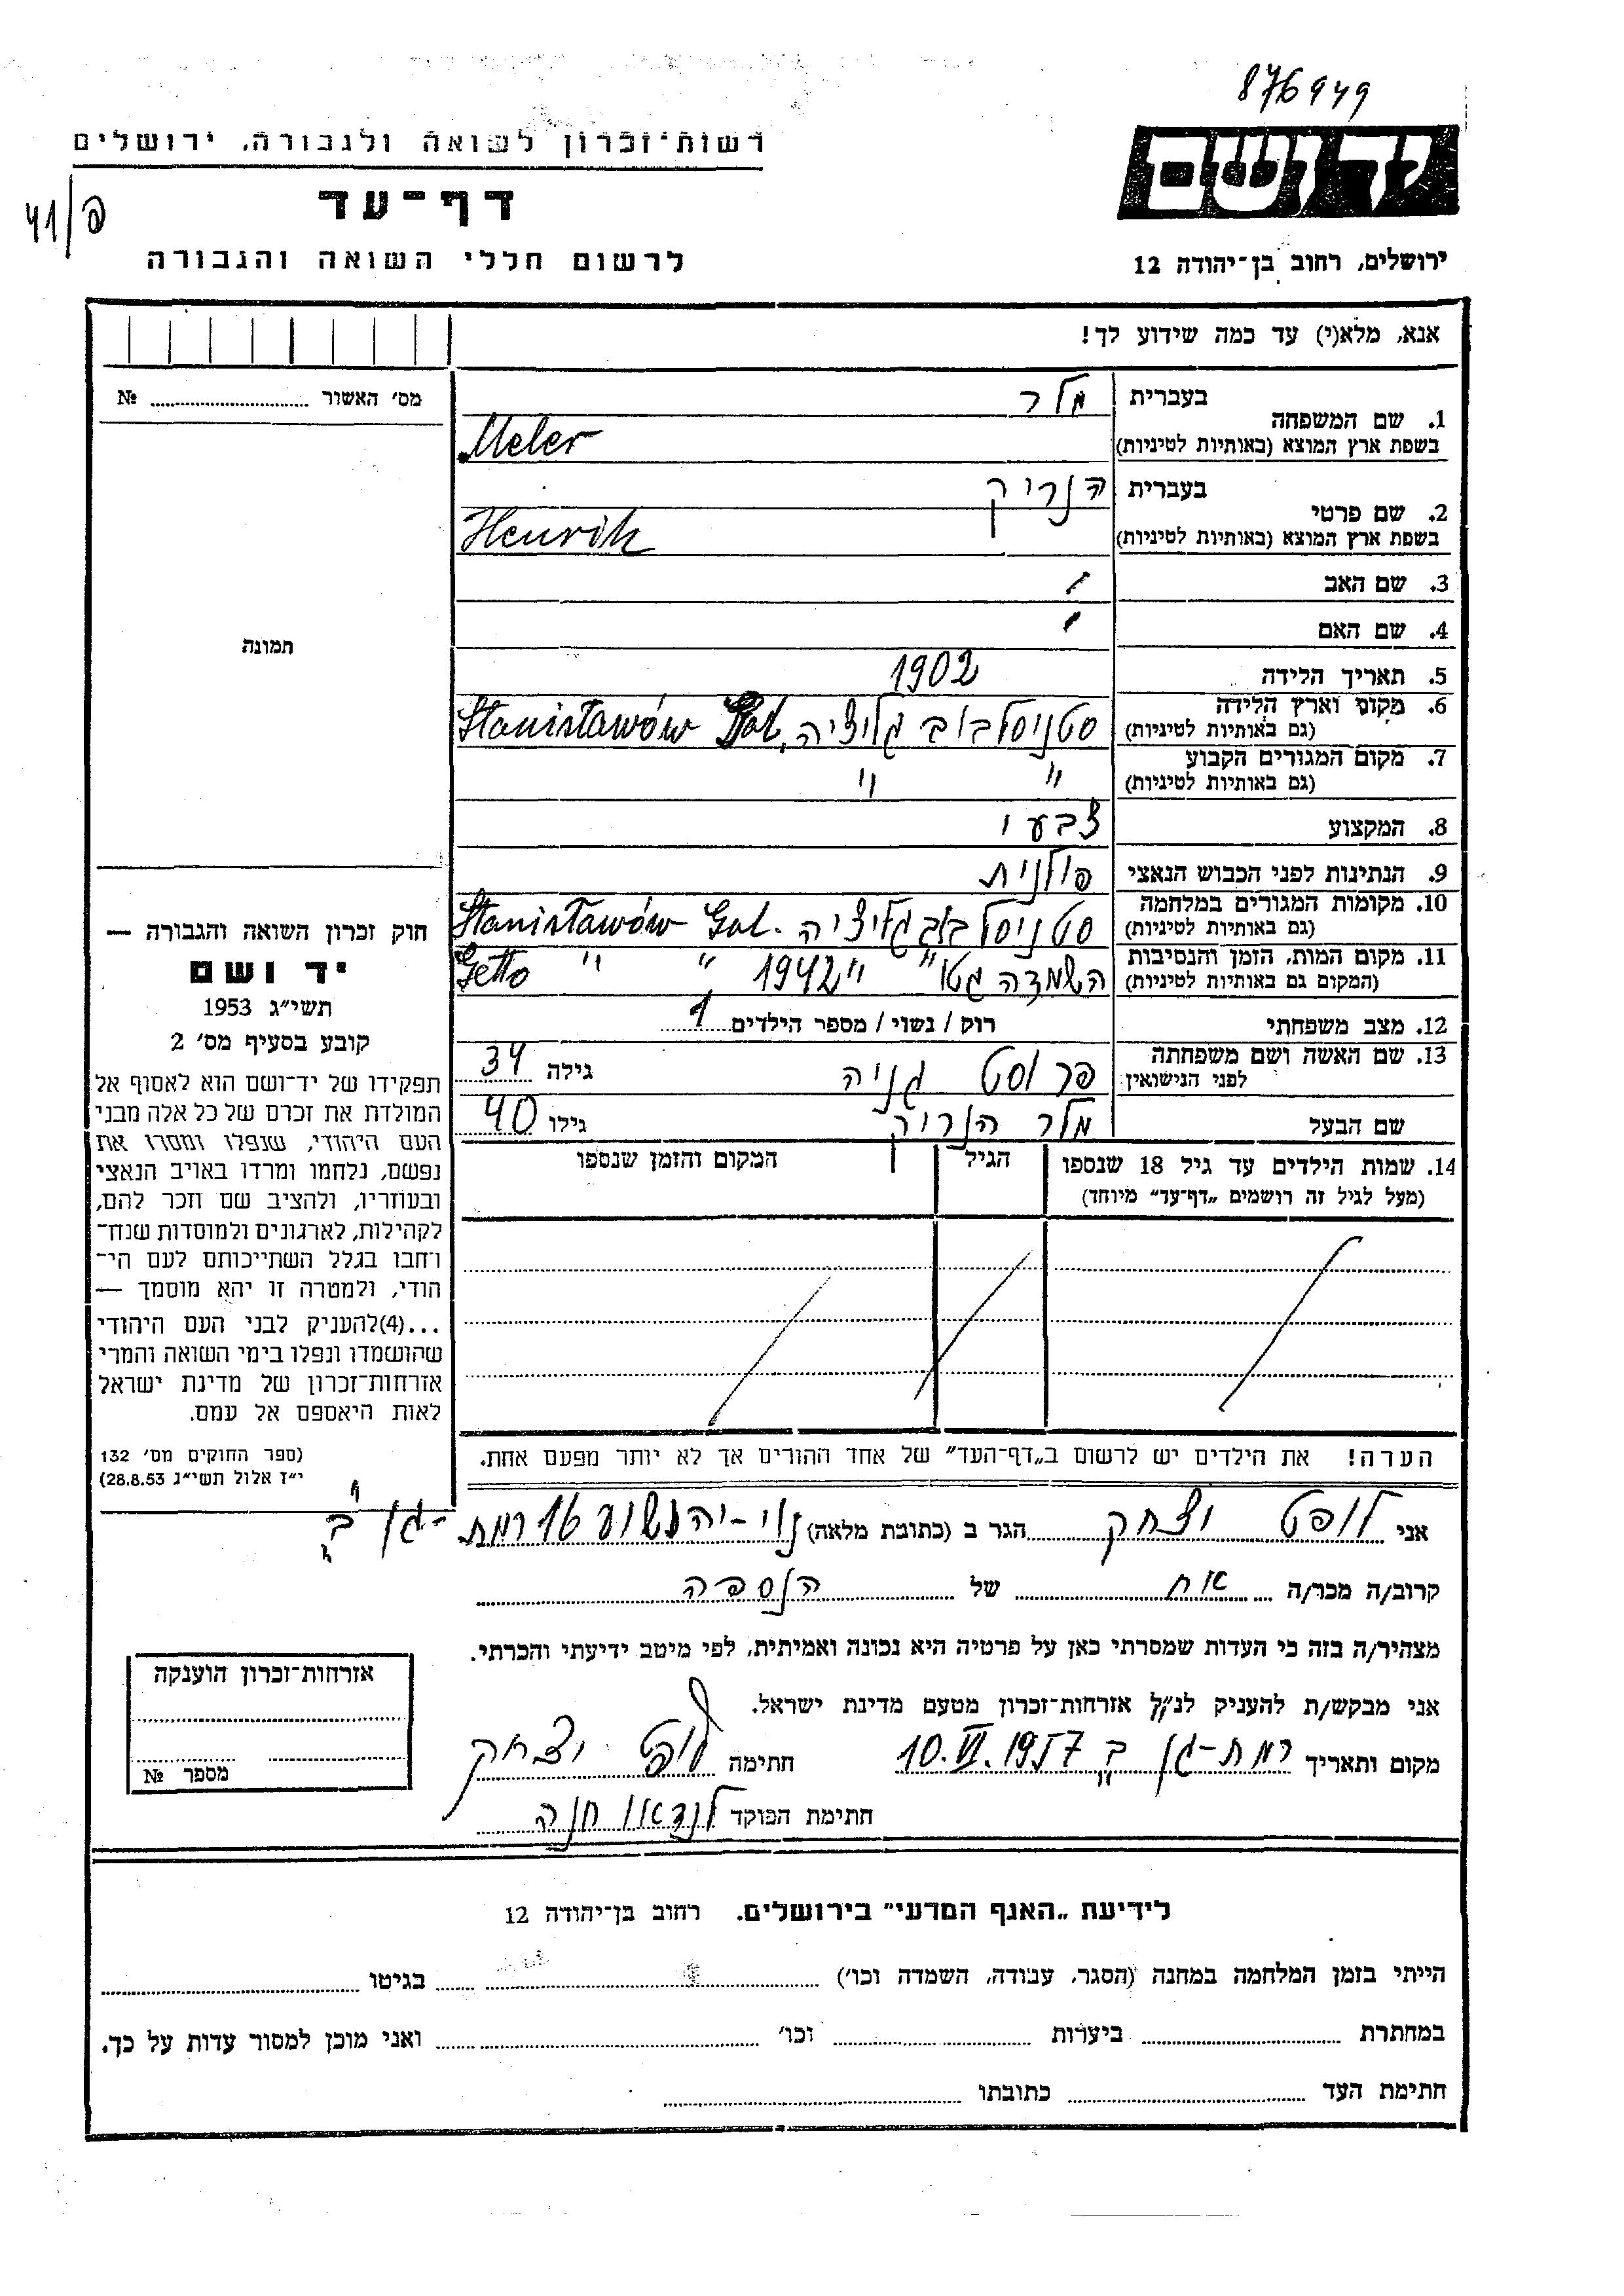 876949
רשות־זכרון לשואה ולגבורה, ירושלים
יד ושם
דף־עד
41/פ
לרשום חללי השואה והגבורה
ירושלים, רחוב בן־יהודה 12
אנא, מלא(י) עד כמה שידוע לך!
מס׳ האשור № 
תמונה
1. שם המשפחה
בעברית מלר
בשפת ארץ המוצא (באותיות לטיניות) Meler
2. שם פרטי
בעברית הנריק
בשפת ארץ המוצא (באותיות לטיניות) Henrik
3. שם האב
4. שם האם
5. תאריך הלידה 1902
6. מקום וארץ הלידה סטניסלבוב גליציה, Stanisławów Gal.
(גם באותיות לטיניות)
7. מקום המגורים הקבוע " "
(גם באותיות לטיניות)
8. המקצוע צבעי
9. הנתינות לפני הכבוש הנאצי פולנית
10. מקומות המגורים במלחמה סטניסלבוב גליציה Stanisławów Gal.
(גם באותיות לטיניות)
11. מקום המות, הזמן והנסיבות השמדה גטו " " 1942 " " Getto
(המקום גם באותיות לטיניות)
12. מצב משפחתי רוק / נשוי / מספר הילדים 1
13. שם האשה ושם משפחתה גניה גילה 34
לפני הנישואין
שם הבעל מלר הנריק גילו 40
14. שמות הילדים עד גיל 18 שנספו הגיל המקום והזמן שנספו
(מעל לגיל זה רושמים „דף־עד” מיוחד)
הערה! את הילדים יש לרשום ב„דף־העד” של אחד ההורים אך לא יותר מפעם אחת.
חוק זכרון השואה והגבורה —
יד ושם
תשי״ג 1953
קובע בסעיף מס׳ 2
תפקידו של יד־ושם הוא לאסוף אל
המולדת את זכרם של כל אלה מבני
העם היהודי, שנפלו ומסרו את
נפשם, נלחמו ומרדו באויב הנאצי
ובעוזריו, ולהציב שם וזכר להם,
לקהילות, לארגונים ולמוסדות שנח־
רבו בגלל השתייכותם לעם הי־
הודי, ולמטרה זו יהא מוסמך —
...(4)להעניק לבני העם היהודי
שהושמדו ונפלו בימי השואה והמרי
אזרחות־זכרון של מדינת ישראל
לאות היאספם אל עמם.
(ספר החוקים מס׳ 132
י״ז אלול תשי״ג 28.8.53)
אני לופט יצחק הגר ב (כתובת מלאה) נוי-יהושוע 16 רמת-גן ב׳
קרוב/ה מכר/ה אח של הנספה
מצהיר/ה בזה כי העדות שמסרתי כאן על פרטיה היא נכונה ואמיתית, לפי מיטב ידיעתי והכרתי.
אני מבקש/ת להעניק לנ״ל אזרחות־זכרון מטעם מדינת ישראל.
מקום ותאריך רמת-גן ב 10.VI.1957 חתימה לופט יצחק
חתימת הפוקד לנדאו חנה
אזרחות־זכרון הוענקה
מספר №
לידיעת „האגף המדעי” בירושלים. רחוב בן־יהודה 12
הייתי בזמן המלחמה במחנה (הסגר, עבודה, השמדה וכו׳) בגיטו
במחתרת ביערות וכו׳ ואני מוכן למסור עדות על כך.
חתימת העד כתובתו